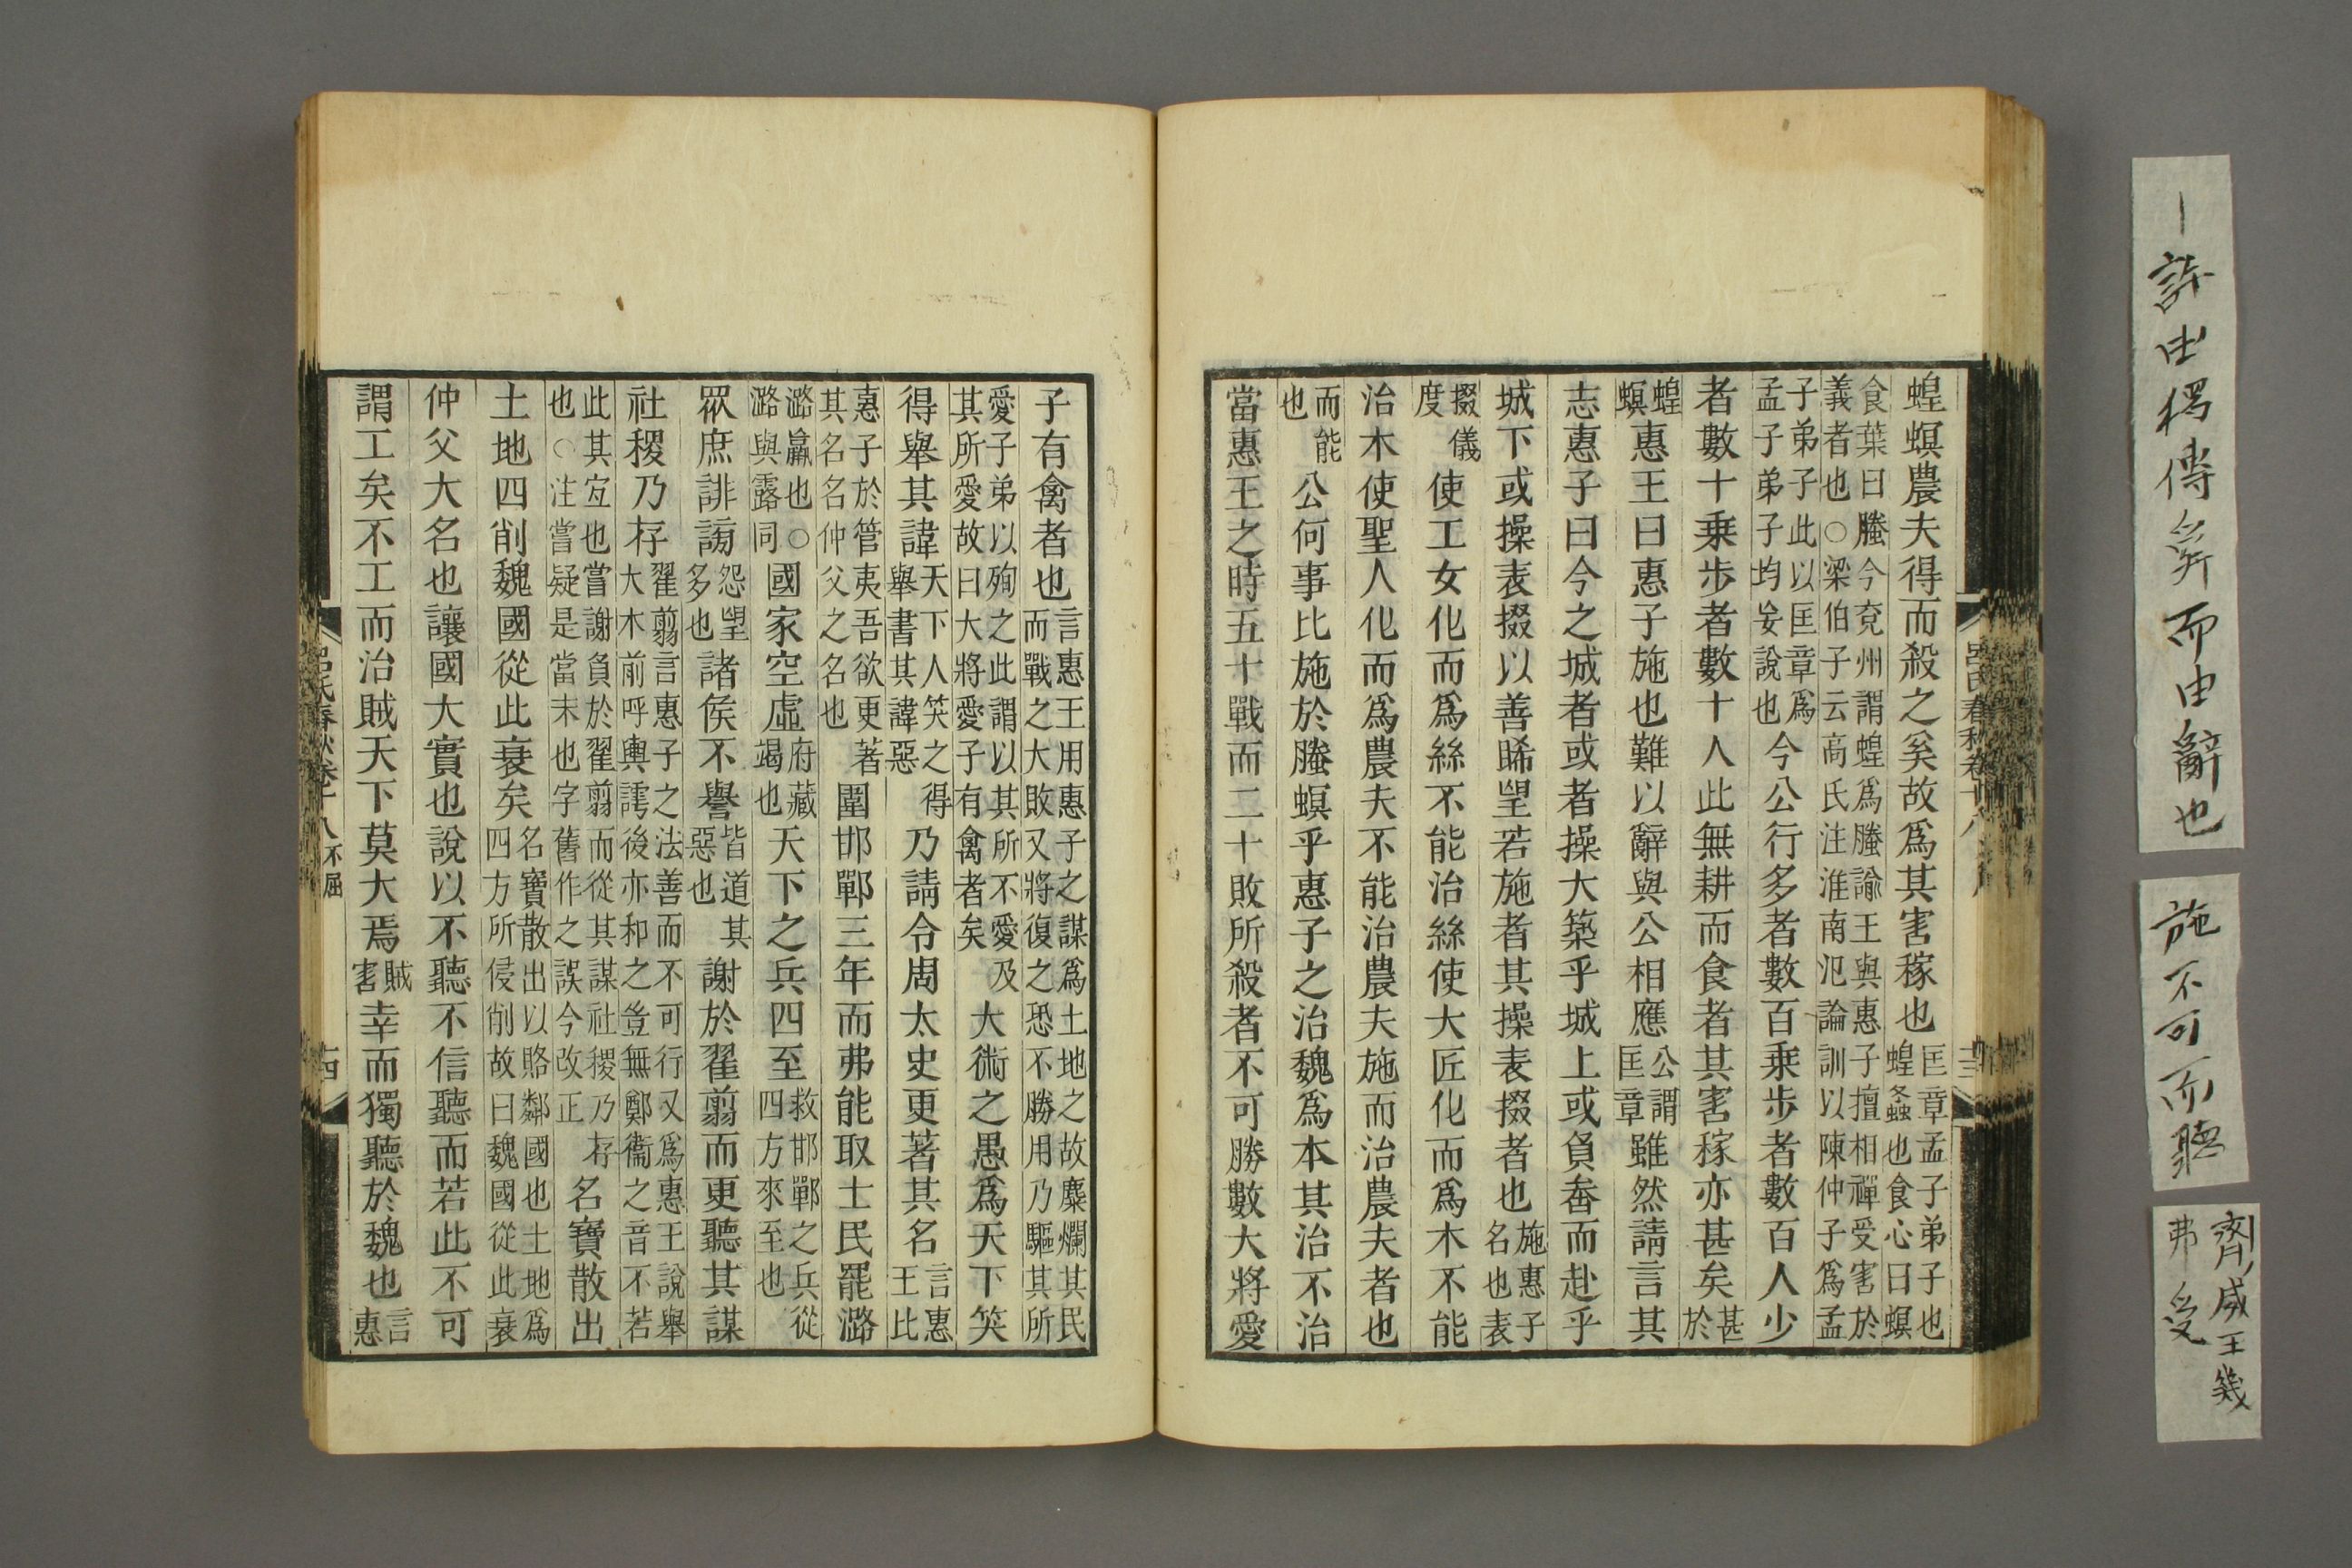 蝗螟農夫得而殺之奚故爲其害稼也匡章孟子弟子也
蝗螽也食心曰螟
食葉曰螣今兗州謂蝗爲螣諭王與惠子擅相禪受害於
義者也○梁伯子云高氏注淮南氾論訓以陳仲子爲孟
子弟子此以匡章爲
孟子弟子均妄說也今公行多者數百乗步者數百人少
者數十乗步者數十人此無耕而食者其害稼亦甚矣甚於
蝗螟惠王曰惠子施也難以辭與公相應公謂匡章雖然請言其
志惠子曰今之城者或者操大築乎城上或負畚而赴乎
城下或操表掇以善睎望若施者其操表掇者也施惠子名也表
掇儀度使工女化而爲絲不能治絲使大匠化而爲木不能
治木使聖人化而爲農夫不能治農夫施而治農夫者也
而能也公何事比施於螣螟乎惠子之治魏爲本其治不治
當惠王之時五十戰而二十敗所殺者不可勝數大將愛
呂氏春秋卷十八
十三
子有禽者也言惠王用惠子之謀爲土地之故麋爛其民
而戰之大敗又將復之恐不勝用乃驅其所
愛子弟以殉之此謂以其所不愛及
其所愛故曰大將愛子有禽者矣大術之愚爲天下笑
得舉其諱天下人笑之得舉書其諱惡乃請令周太史更著其名言惠王比
惠子於管夷吾欲更著
其名名仲父之名也圍邯鄲三年而弗能取士民罷潞
潞羸也○潞與露同國家空虛府藏竭也天下之兵四至救邯鄲之兵從四方來至也
眾庶誹謗怨望多也諸侯不譽皆道其惡也謝於翟翦而更聽其謀
社稷乃存翟翦言惠子之法善而不可行又爲惠王說舉
大木前呼輿謣後亦和之豈無鄭衞之音不若
此其宜也嘗謝負於翟翦而從其謀社稷乃存
也○注嘗疑是當末也字舊作之誤今改正名寶散出
土地四削魏國從此衰矣名寶散出以賂鄰國也土地爲
四方所侵削故曰魏國從此衰
仲父大名也讓國大實也說以不聽不信聽而若此不可
謂工矣不工而治賊天下莫大焉賊害幸而獨聽於魏也言惠
呂氏春秋卷十八不屈
十四
一許由稱傳筭而由辭也
施不可而聽
齊威王幾
弗受